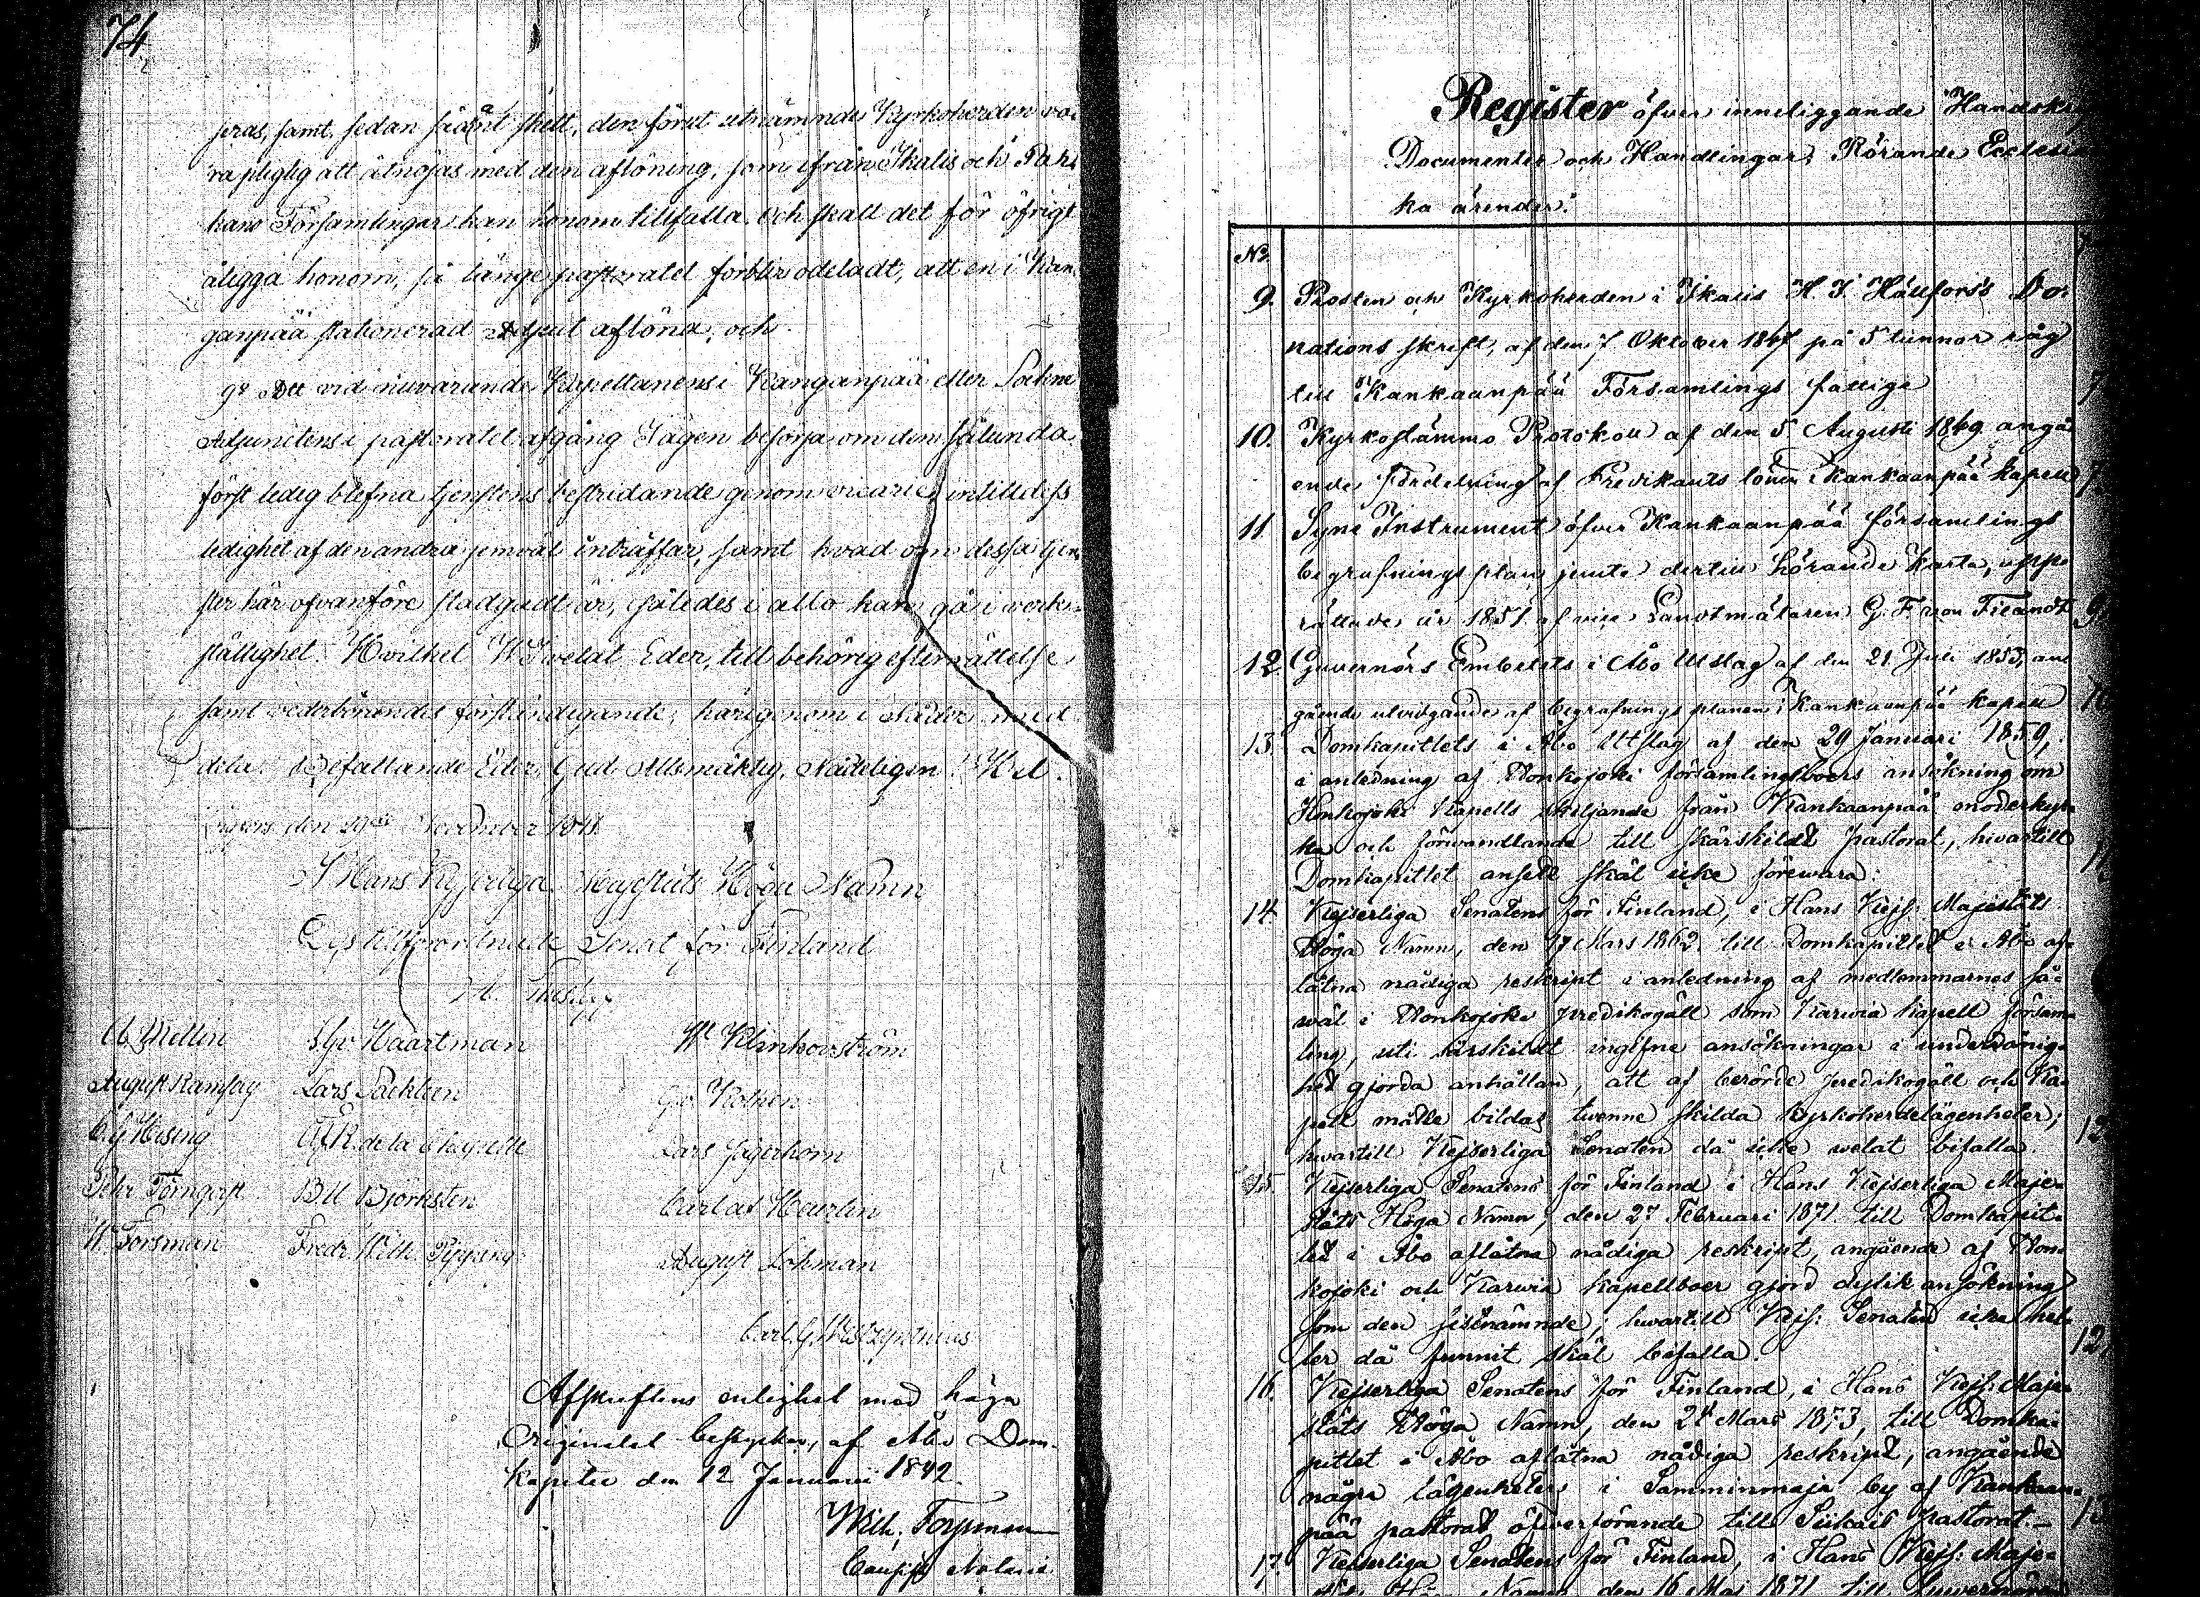 74
feras, samt, sedan sådant skett, den först utnämnde Kyrkoherden va-
ra pligtig att åtnöjas med den aflöning, som ifrån Ikalis och Par-
kano Församlingar kan honom tillfalla. Och skall det för öfrigt
åligga honom, så länge pastoratet förblir odeladt, att en i Kan-
ganpää stationerad Adjunct aflöna; och
9o Att vid nuvarande Kapellanens i Kanganpää eller Sockne
Adjunctens i pastoratet afgång I ägen besörja om den sålunda
först ledig blefna tjenstens bestridande genom vicarie, intilldess
ledighet af den andra jemväl inträffar, samt hvad om dessa tjen-
ster här ofvanföre stadgadt är, således i allo kan gå i verk-
ställighet. Hvilket Wi velat Eder, till behörig efterrättelse
samt vederbörandes förständigande, härigenom i Nåder med-
dela. Befallande Eder Gud Allsmäktig, Nådeligen. Hel-
singfors den 29de November 1841.
I Hans Kejserliga Majestäts Höga Namn
Dess tillförordnade Senat för Finland
A. Mellin
L. G. v Haartman
W. Klinkowström
August Ramsay
Lars Sackleen
G. v Kothen
C. G. Hising
A. f. R. de la Chapelle
Lars Jägerhorn
Pehr Törnqvist
B. U. Björkstén
Carl af Heurlin
W. Forsman
Fredr. Wilh. Pipping
August Lohman
Carl G.
Afskriftens enlighet med höga
Originalet bestyrker, af Åbo Dom-
kapitel den 12 Januarii 1842.
Wilh. Forsman
Consist. Notarie
Register öfver inneliggande Handskr
Documenter och Handlingar, Rörande Ecclesi
ka ärender.
No.
9. Prosten och Kyrkoherden i Ikalis H. J. Hällfors's Do-
nations skrift, af den 7 Oktober 1847 på 5 tunnor råg
till Kankaanpää Församlings fattige
10. Kyrkostämmo Protokoll af den 5 Augusti 1849 angå-
ende Fördelning af Predikants lönen i Kankaanpää kapell
11. Syne Instrument öfver Kankaanpää församlings
begrafnings plan jemte dertill hörande Karta, uppe-
rättade år 1851 af vice Landtmätaren G. F. von Fieandt
12. Guvernörs Embetets i Åbo Utslag af den 21. Juli 1853, an-
gående utvidgande af begrafnings planen i Kankaanpää kapell
13. Domkapitlets i Åbo Utslag af den 29 Januari 1859,
i anledning af Honkojoki församlingsboers ansökning om
Honkojoki Kapells skiljande från Kankaanpää moderkyr-
ka och förwandlande till särskildt pastorat, hwartill
Domkapitlet ansett skäl icke förewara.
14. Kejserliga Senatens för Finland, i Hans Kejs: Majestäts
Höga Namn, den 27 Mars 1862 till Domkapitlet i Åbo af-
låtna nådiga reskript i anledning af medlemmarnes så-
wäl i Honkojoki predikogäll som Karwia kapell försam-
ling, uti särskildt ingifne ansökningar i underdånig-
het gjorda anhållan, att af berörde predikogäll och Ka-
pell måtte bildas twenne skilda Kyrkoherdelägenheter;
hwartill Kejserliga Senaten då icke welat bifalla.
15. Kejserliga Senatens för Finland i Hans Kejserliga Maje-
stäts Höga Namn, den 27 Februari 1871 till Domkapit-
let i Åbo aflåtna nådiga reskript, angående af Hon-
kojoki och Karwia kapellboer gjord dylik ansökning
som den sistnämnde; hwartill Kejs: Senaten icke hel-
ler då funnit skäl bifalla.
16. Kejserliga Senatens för Finland, i Hans Kejs: Maje-
stäts Höga Namn, den 24 Mars 1873, till Domka-
pitlet i Åbo aflåtna nådiga reskript, angående
några lägenheters i Samminmaja by af Kankaan-
pää pastorat öfwerförande till Siikais pastorat.-
17. Kejserliga Senatens för Finland, i Hans Kejs: Maje-
stäts Höga Namn den 16 Maj 1871 till Guvernören